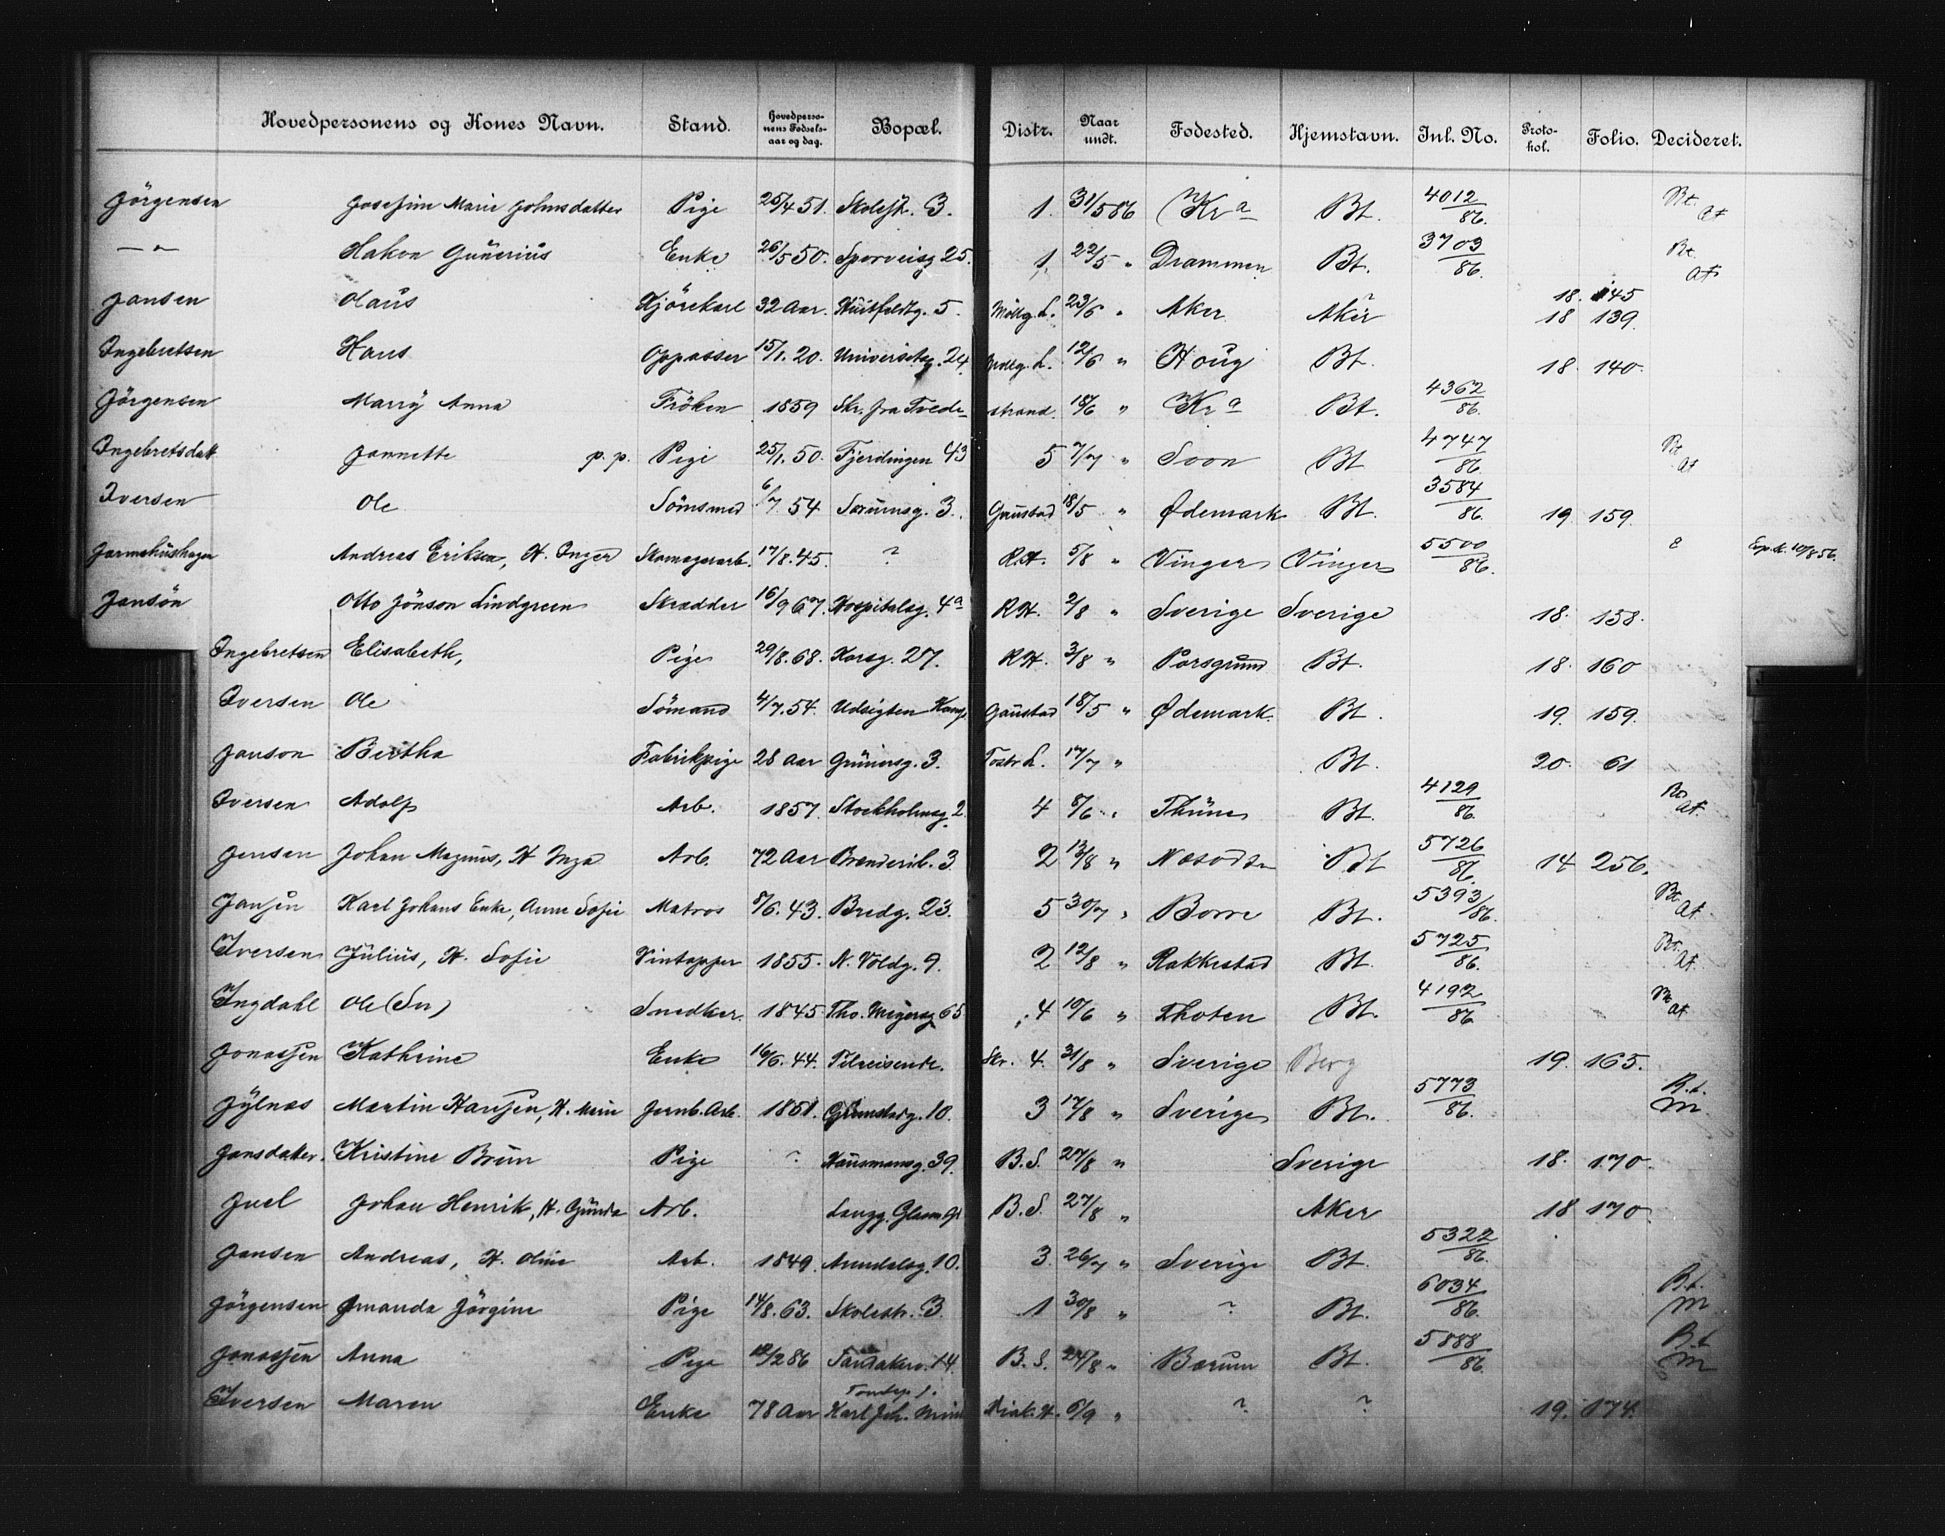 Hovedpersonens og Kones Navn. Stand. Hovedpersonens Fødselsaar og dag. Bopæl. Distr. Naar undt. Fødested. Hjemstavn. Jnl. No. Protokol. Folio. Decideret.
Jörgensen Josefine Marie Johnsdatter Pige 25/4 51. Skolest. 3. 1. 31/5 86 Kra Bt. 4012/86. Bt. af
—〃— Hakon Gunerius Enke 26/5 50. Sporveisg 25. 1. 22/5 〃 Drammen Bt. 3703/86. Bt. af
Jansen Olaus Kjörekarl 32 Aar. Huitfeldtg. 5. Möllg. L. 23/6 〃 Aker Aker 18. 145 18 139
Ingebretsen Hans Oppasser 15/1. 20. Universitetsg. 24. Möllg. L. 12/6 〃 Houg Bt. 18. 140.
Jörgensen Marry Anna Fröken 1859 Skr. fra Tvedestrand. 18/6 〃 Kra Bt. 4362/86.
Ingebretsdatt. Jannette p. p. Pige 25/1. 50. Fjerdingen 43 5 7/7 〃 Soon Bt 4747/86. Bt af
Iversen Ole Sömand 6/7 54 Sørumsg. 3. Gaustad 18/5 〃 Ødemark Bt. 3584/86. 19. 159.
Andreas Eriksen, H. Inger 17/8. 45. ? R.H. 5/8 〃 Vinger Vinger 5500/86.
Jansön Otto Jönson Lindgreen Skrædder 16/9 67. Hospitalsg. 4a R.H. 2/8 〃 Sverige Sverige 18. 158.
Ingebretsen Elisabeth, Pige 29/8. 68. Korsg. 27. R.H. 3/8 〃 Porsgrund Bt. 18. 160
Iversen Ole Sömand 4/7. 54. Udsigten Kamp Gaustad 18/5 〃 Ødemark. Bt. 19. 159.
Janson Bertha Fabrikpige 28 Aar Grünersg. 3. Tostr. L. 17/7 〃 Bt. 20. 61
Iversen Adolf Arb. 1857. Stockholmsg. 2. 4 8/6 〃 Thune Bt. 4129/86. Bt. af.
Jensen Johan Magnus, H Inga Arb. 72 Aar Brænderib. 3. 2 13/8 〃 Næsodden Bt 5726/86. 14 256.
Jansen Karl Johans Enke, Anne Sofie Matros 8/6. 43. Bredg. 23. 5 30/7 〃 Borre Bt. 5393/86. Bt. af.
Iversen Julius, H. Sofie Vintapper 1855. N. Voldg. 9. 2 12/8 〃 Rakkestad Bt. 5725/86. Bt. af.
Ingdahl Ole (Sn) Snedker. 1845. Tho. Meyersg 65 4 10/6 〃 Thoten Bt. 4192/86. Bt af
Jonassen Kathrine Enke 16/6. 44. Tilreisende. Skr. 4. 31/8 〃 Sverige Berg 19. 165.
Jylnæs Martin Hansen, H. Marie Jernb. Arb. 1851. Grimstadg. 10. 3 17/8 〃 Sverige Bt. 5773/86. B.t. M
Jansdatter. Kristine Brun Pige ? Hausmansg. 39. B.S. 27/8 〃 Sverige 18. 170.
Juel Johan Henrik, H. Gunda Arb. Langg. B.S. 27/8 〃 Aker 18 170.
Jansen Andreas, H. Oline Arb. 1849. Arendalsg. 10. 3. 26/7 〃 Sverige Bt. 5322/86.
Jörgensen Amanda Jörgine Pige 14/8. 63. Skolestr. 3. 1 30/8 〃 ? Bt. 6034/86. B.t. M
Jonassen Anna Pige 12/2 86 14. B.S. 24/8 〃 Bærum Bt. 5888/86. B.t M
Iversen Maren Enke 78 Aar Karl Joh. Minde Diak. H. 6/9 〃 ? ? 19. 174.